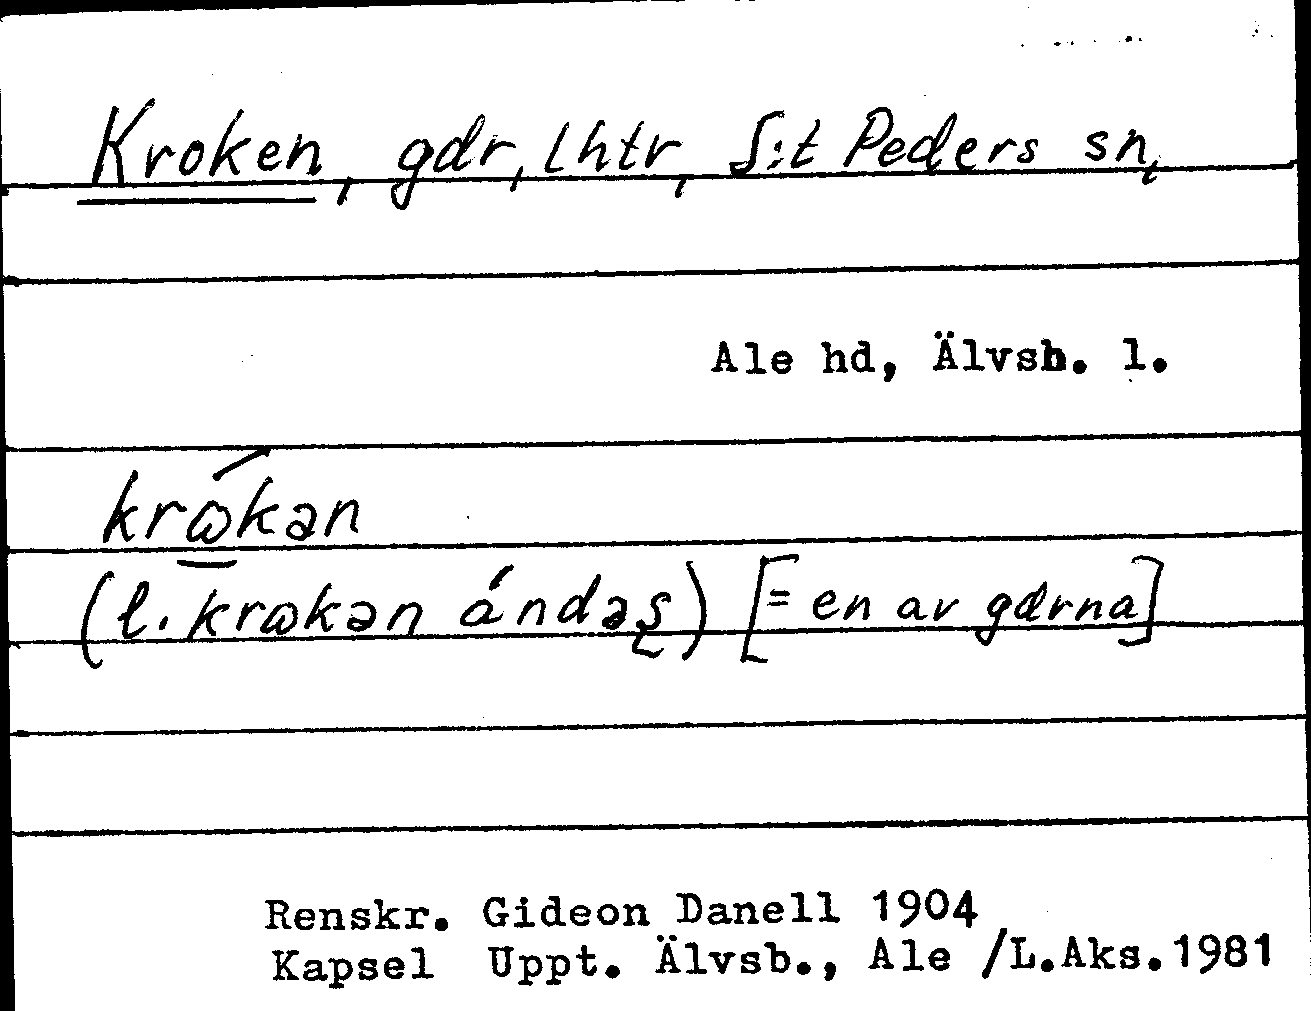 Kroken, gdr, lhtr, S:t Peders sn,
Ale hd, Älvsb. l.
krώ̲kən
(l. krωkən ándəş) [= en av gdrna]
Renskr. Gideon Danell 1904
Kapsel Uppt. Älvsb., Ale /L.Aks.1981